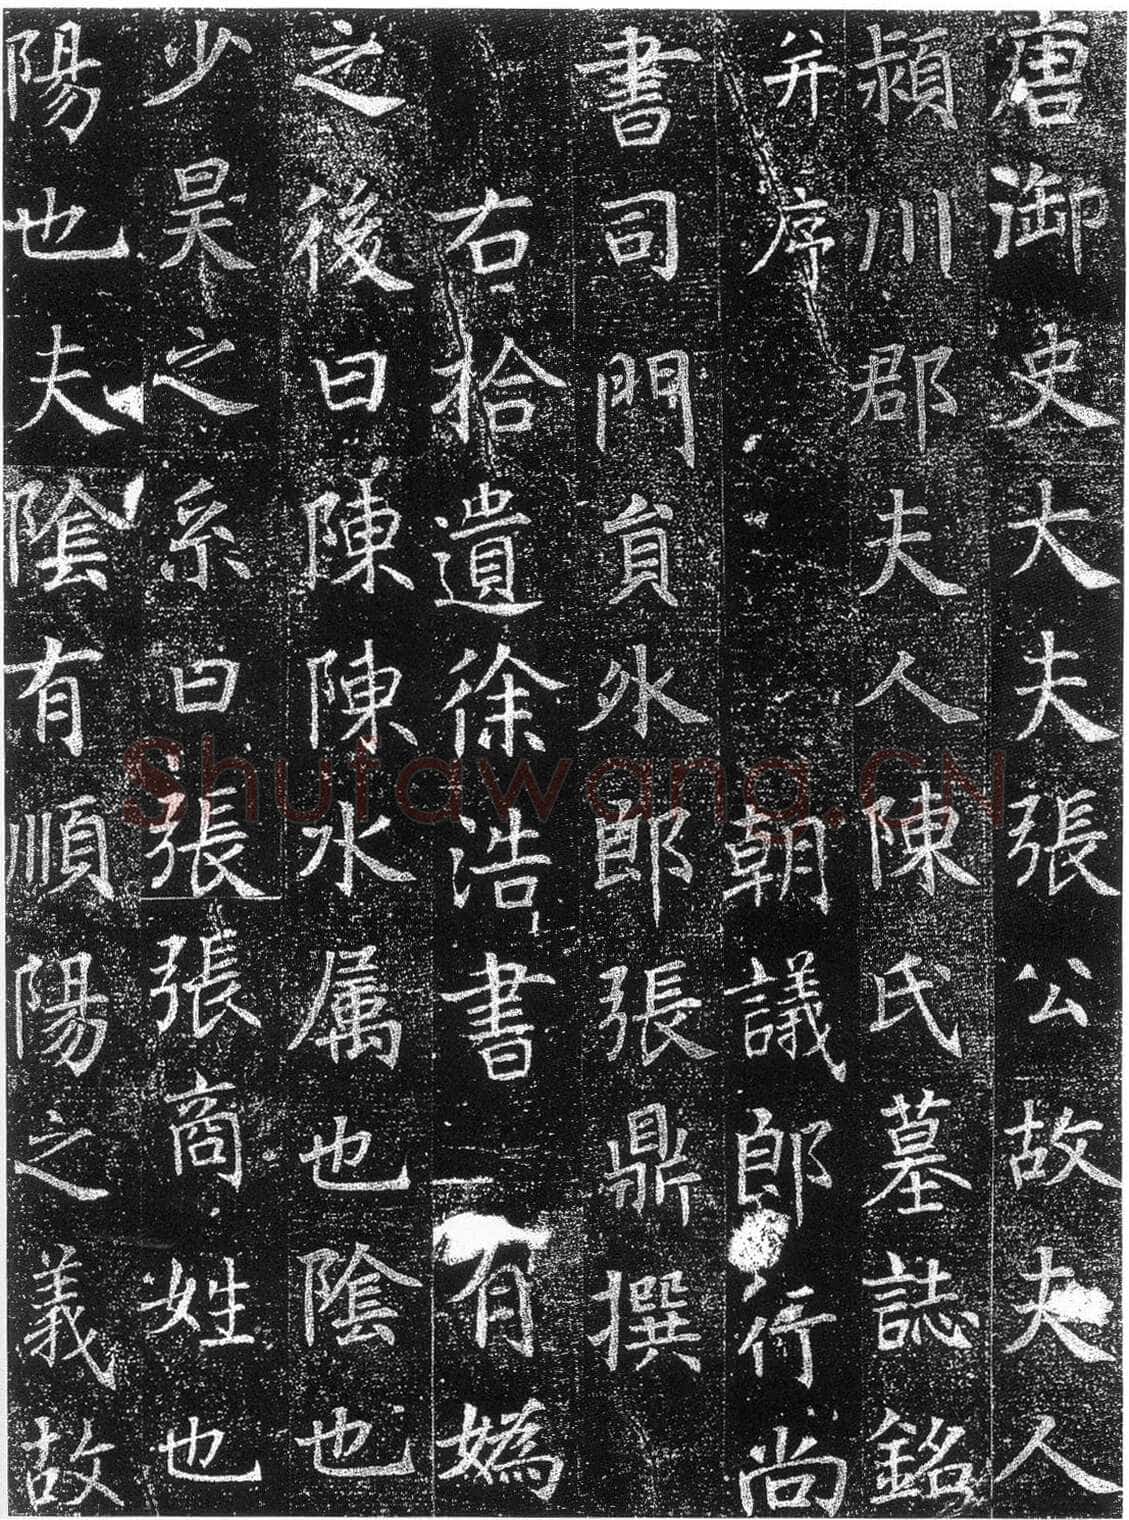 唐御史大夫張公故夫人
潁川郡夫人陳氏墓誌銘
并序 朝議郎行尚
書司門員外郎張鼎撰
右拾遺徐浩書 有媯
之後曰陳陳水属也陰也
少昊之系曰張張商姓也
陽也夫陰有順陽之義故
Shufawang.CN